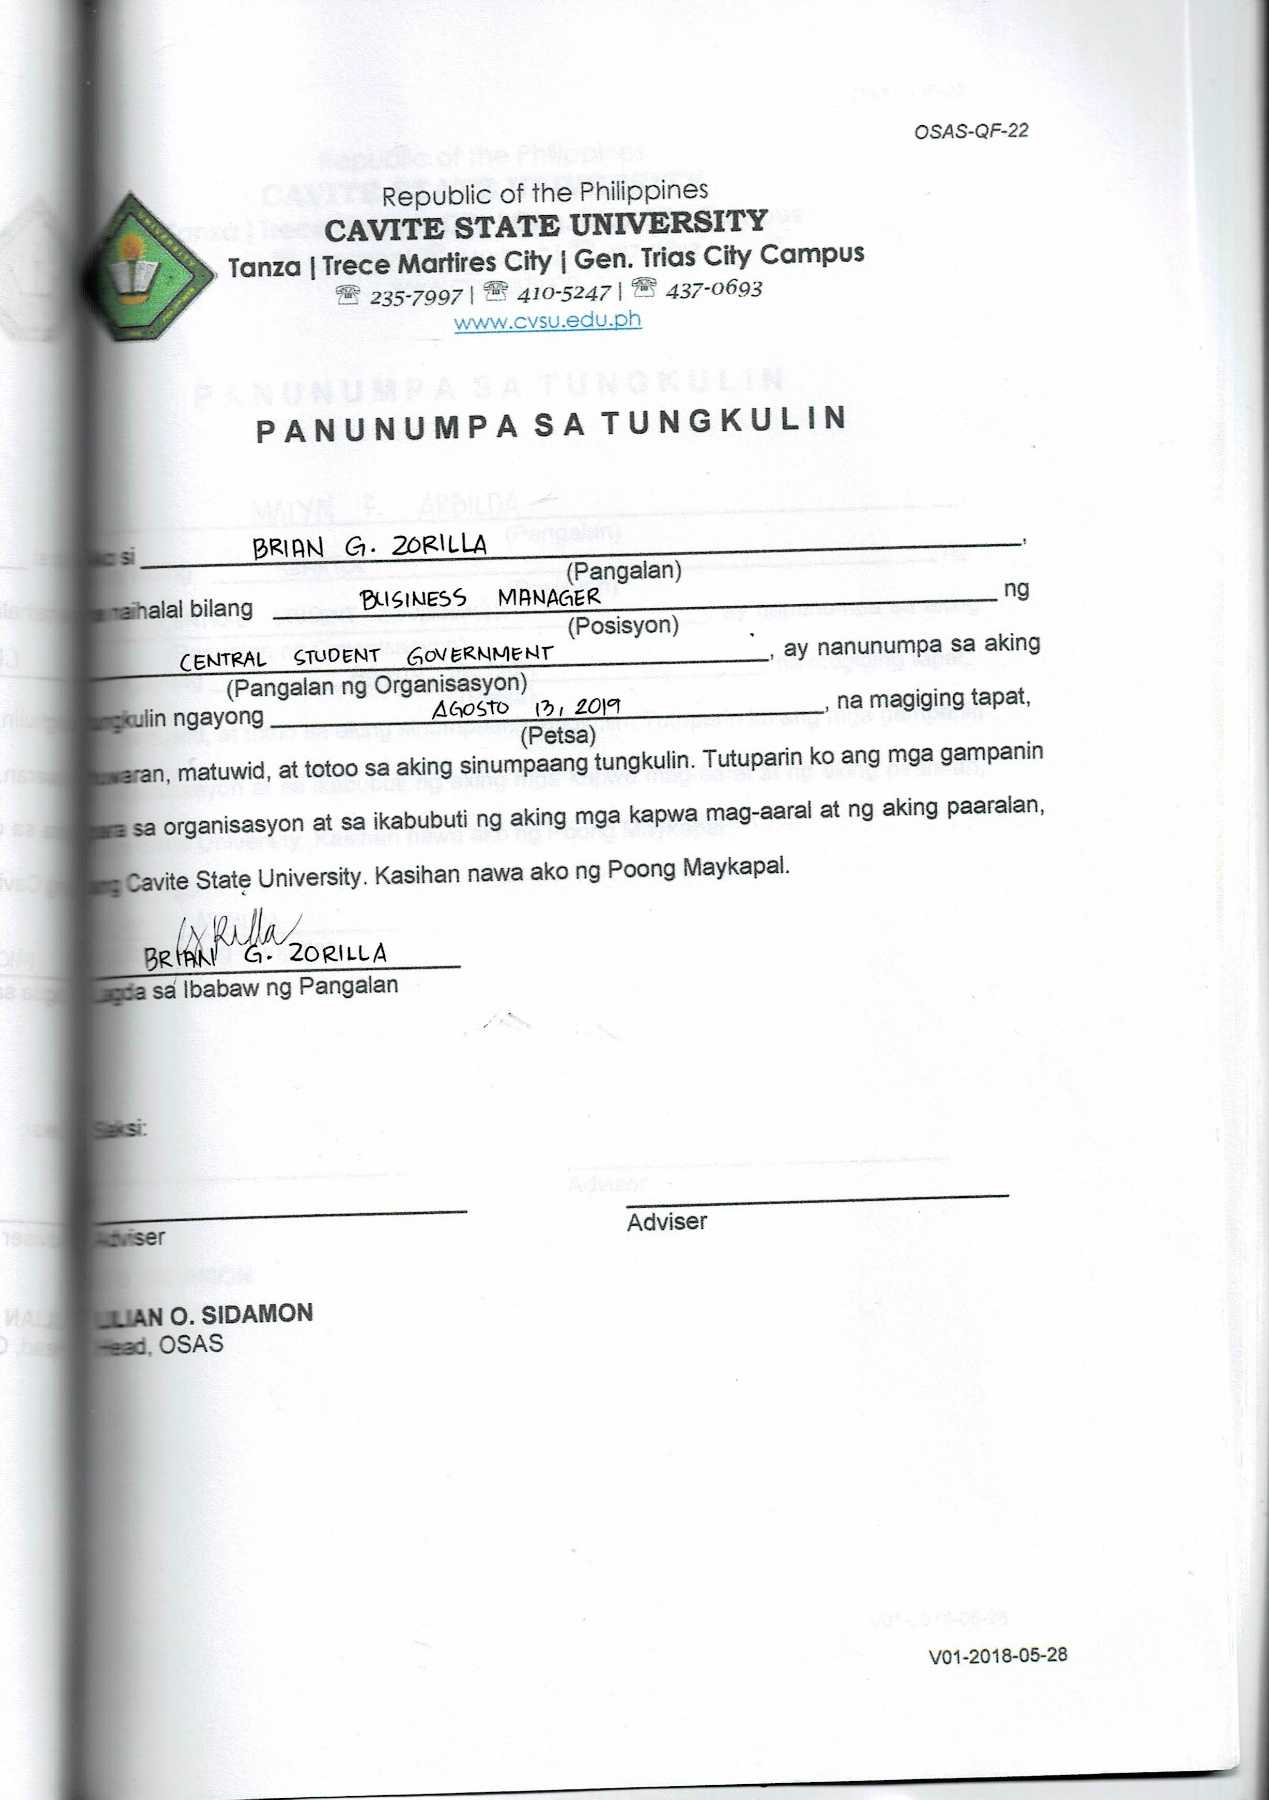 OSAS-QF-22
Republic of the Philippines
CAVITE STATE UNIVERSITY
Tanza | Trece Martires City | Gen. Trias City Campus
☏ 235-7997 | ☏ 410-5247 | ☏ 437-0693
www.cvsu.edu.ph
PANUNUMPA SA TUNGKULIN
si BRIAN G. ZORILLA,
(Pangalan)
naihalal bilang BUSINESS MANAGER ng
(Posisyon)
CENTRAL STUDENT GOVERNMENT, ay nanunumpa sa aking
(Pangalan ng Organisasyon)
tungkulin ngayong AGOSTO 13, 2019, na magiging tapat,
(Petsa)
matuwid, at totoo sa aking sinumpaang tungkulin. Tutuparin ko ang mga gampanin
para sa organisasyon at sa ikabubuti ng aking mga kapwa mag-aaral at ng aking paaralan,
ang Cavite State University. Kasihan nawa ako ng Poong Maykapal.
BRIAN G. ZORILLA
Lagda sa Ibabaw ng Pangalan
Saksi:
Adviser Adviser
LILIAN O. SIDAMON
Head, OSAS
V01-2018-05-28